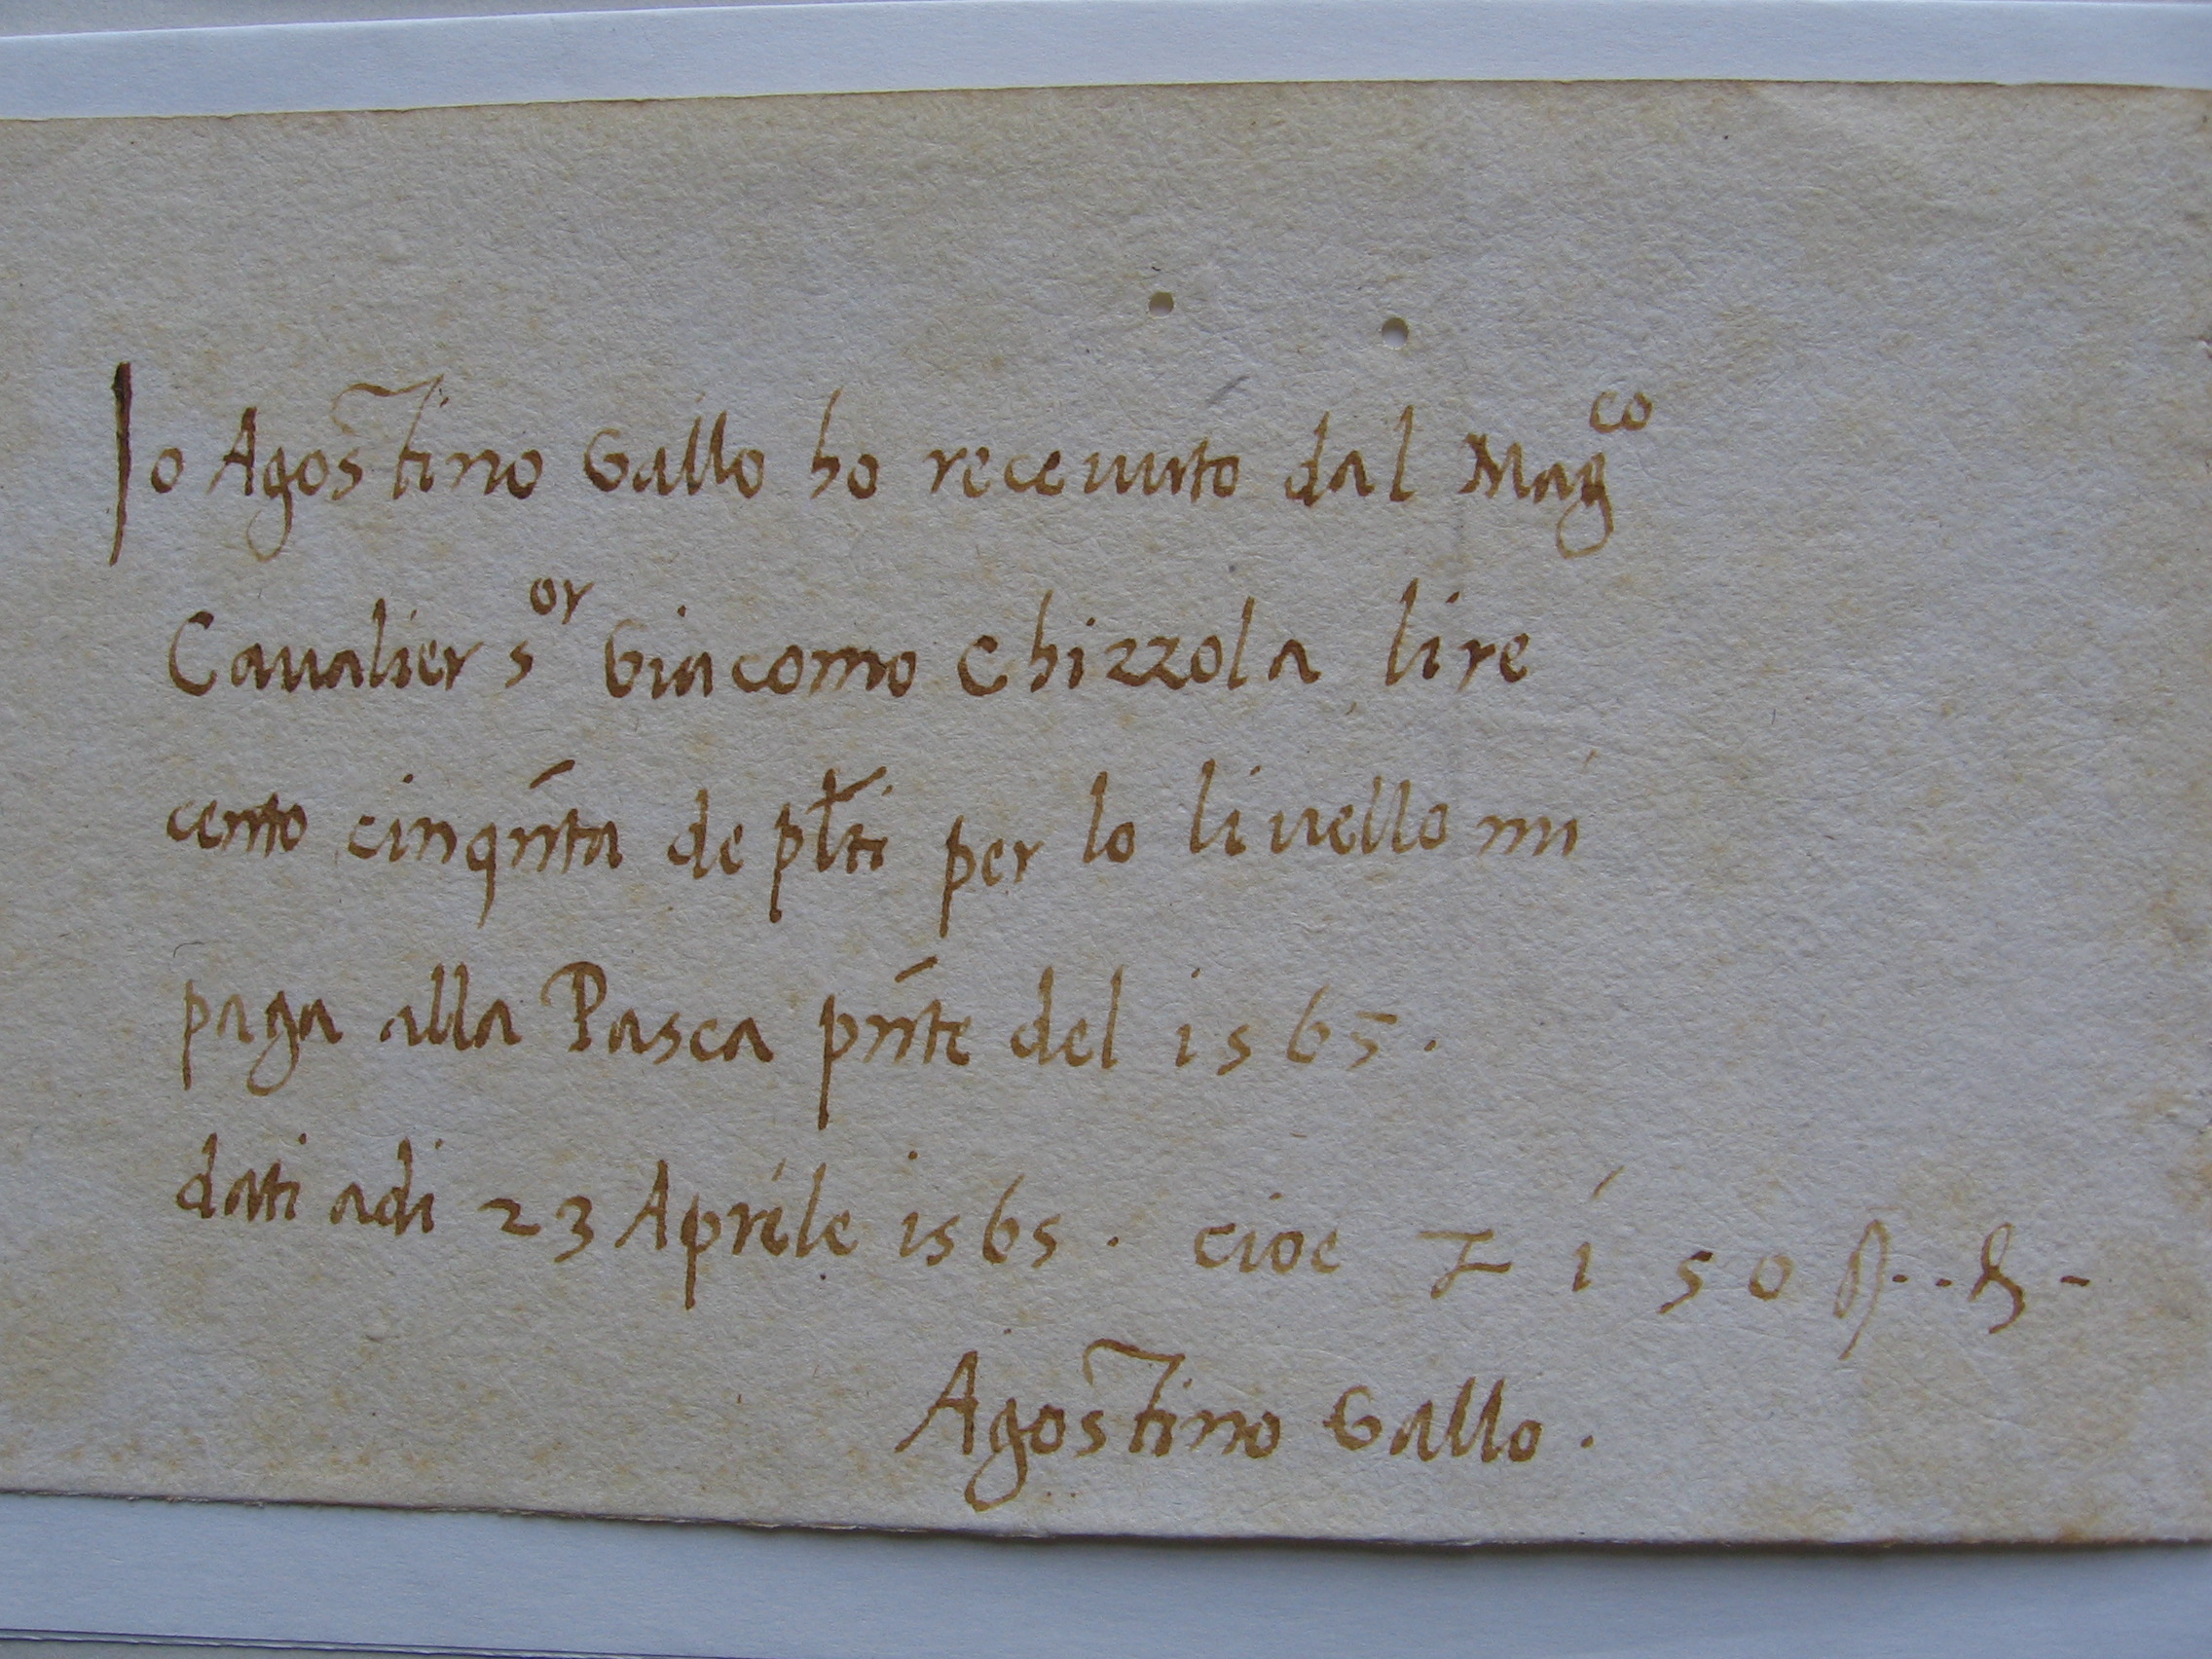 Io Agostino Gallo ho receuuto dal Mag^co
Caualier s^or Giacomo Chizzola lire
cento cinqn̄ta de pl̄ti per lo liuello mi
paga alla Pasca pn̄te del 1565.
dati adi 23 Aprile 1565. cioe £ 150 ß..
Agostino Gallo.